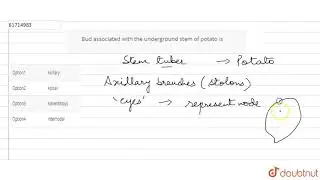 61714983
Bud associated with the underground stem of potato is
Option1 Axillary
Option2 Apical
Option3 Adventitious
Option4 Internodal
Stem tuber → Potato
Axillary branches (stolons)
'eyes' → represent node
doubtnut